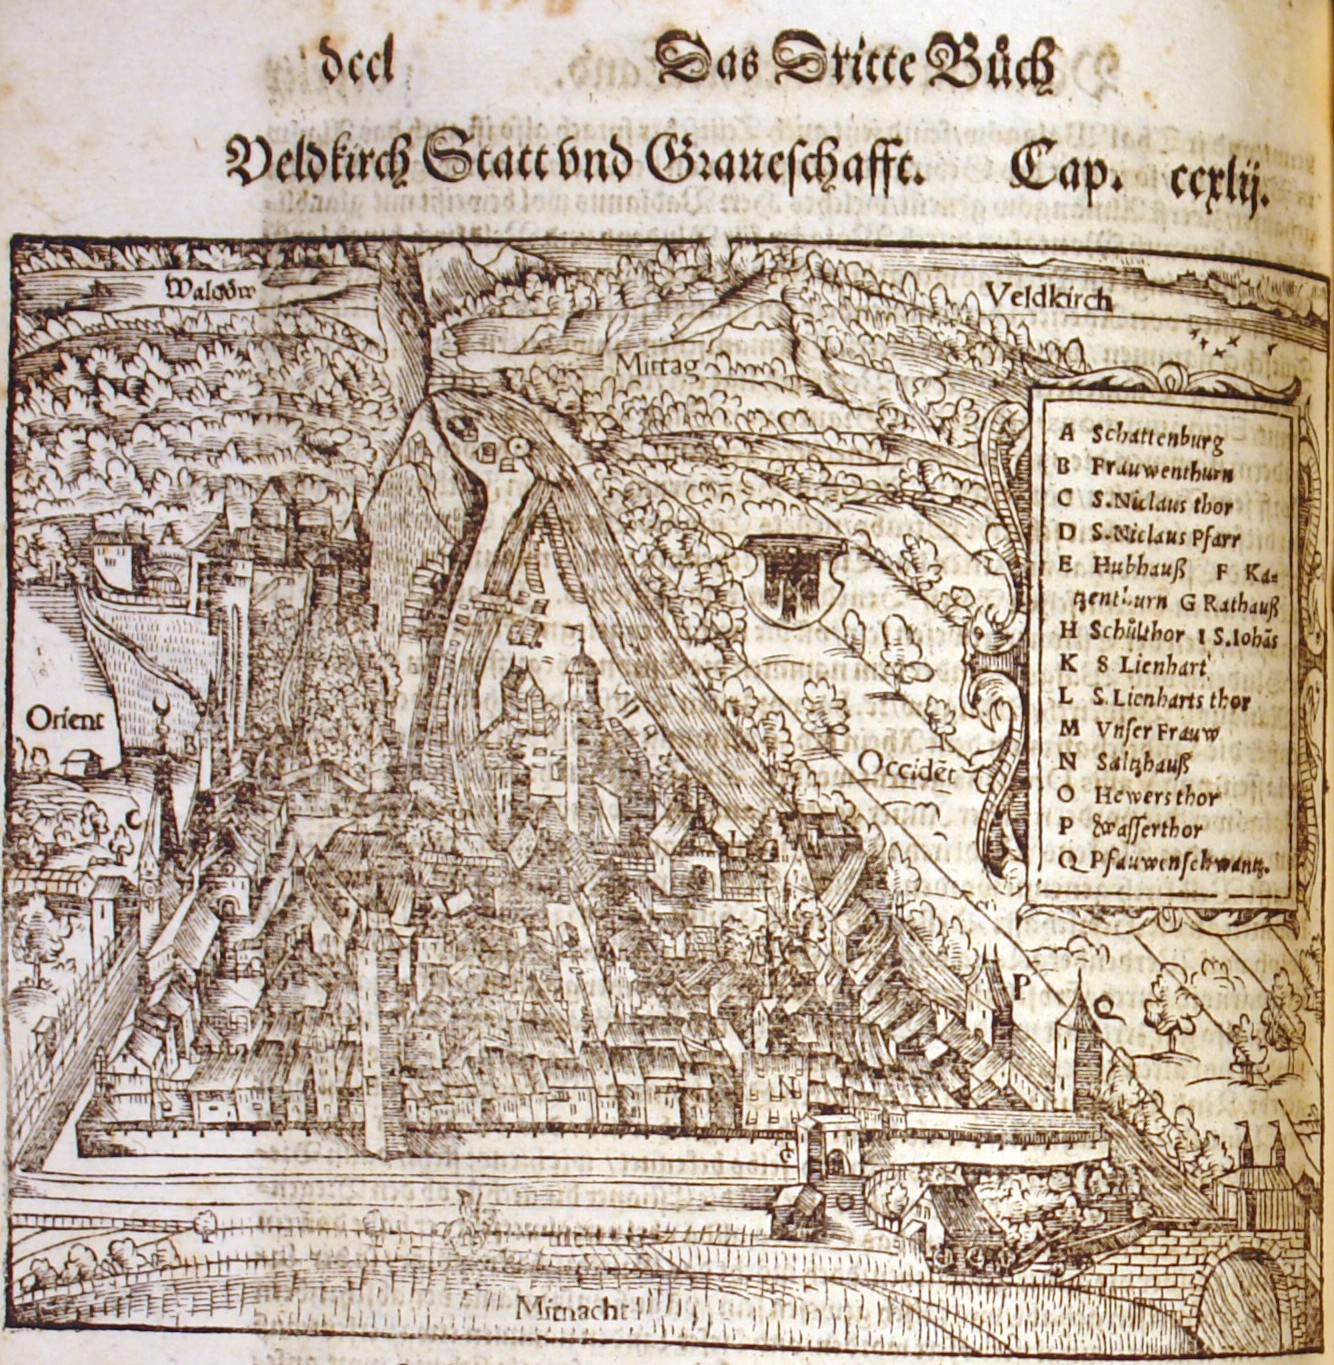 dccl Das Dritte Bůch
Veldkirch Statt vnd Graueschafft. Cap. ccxlij.
Waldöw
Veldkirch
Mittag
A Schattenburg
B Frauwenthurn
C S. Niclaus thor
D S. Niclaus Pfarr
E Hubhauß F Ka=
tzenthurn G Rathauß
H Schůlthor I S. Iohãs
K S Lienhart
L S. Lienharts thor
M Vnser Frauw
N Saltzhauß
O Hewers thor
P Wasserthor
Q Pfauwenschwantz.
A
Orient
B
Occidẽt
C
L
P
Q
N
Mitnacht